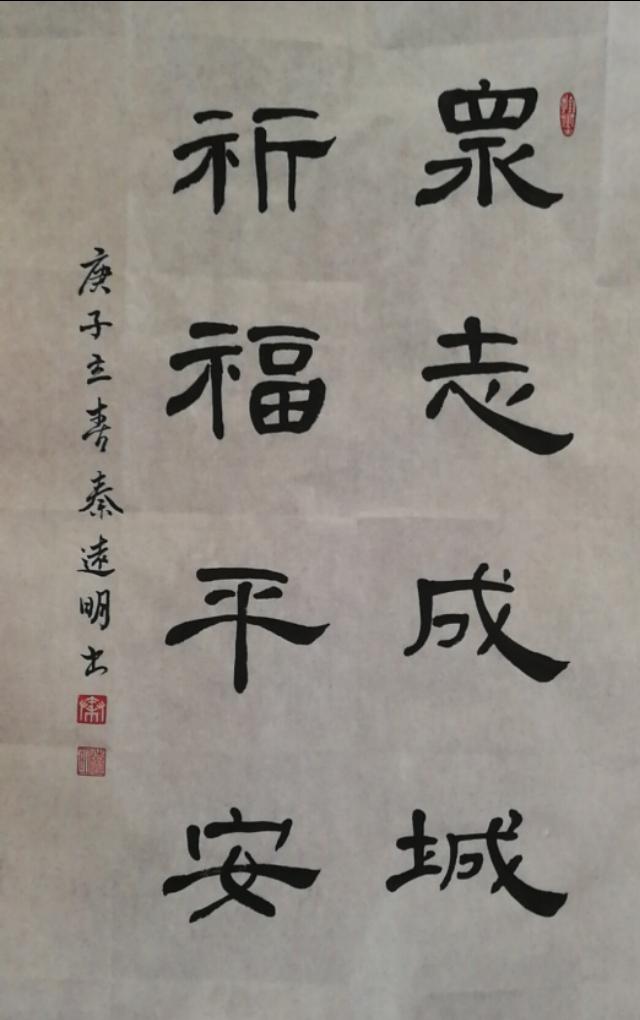 眾志成城
祈福平安
庚子立春秦遠明书